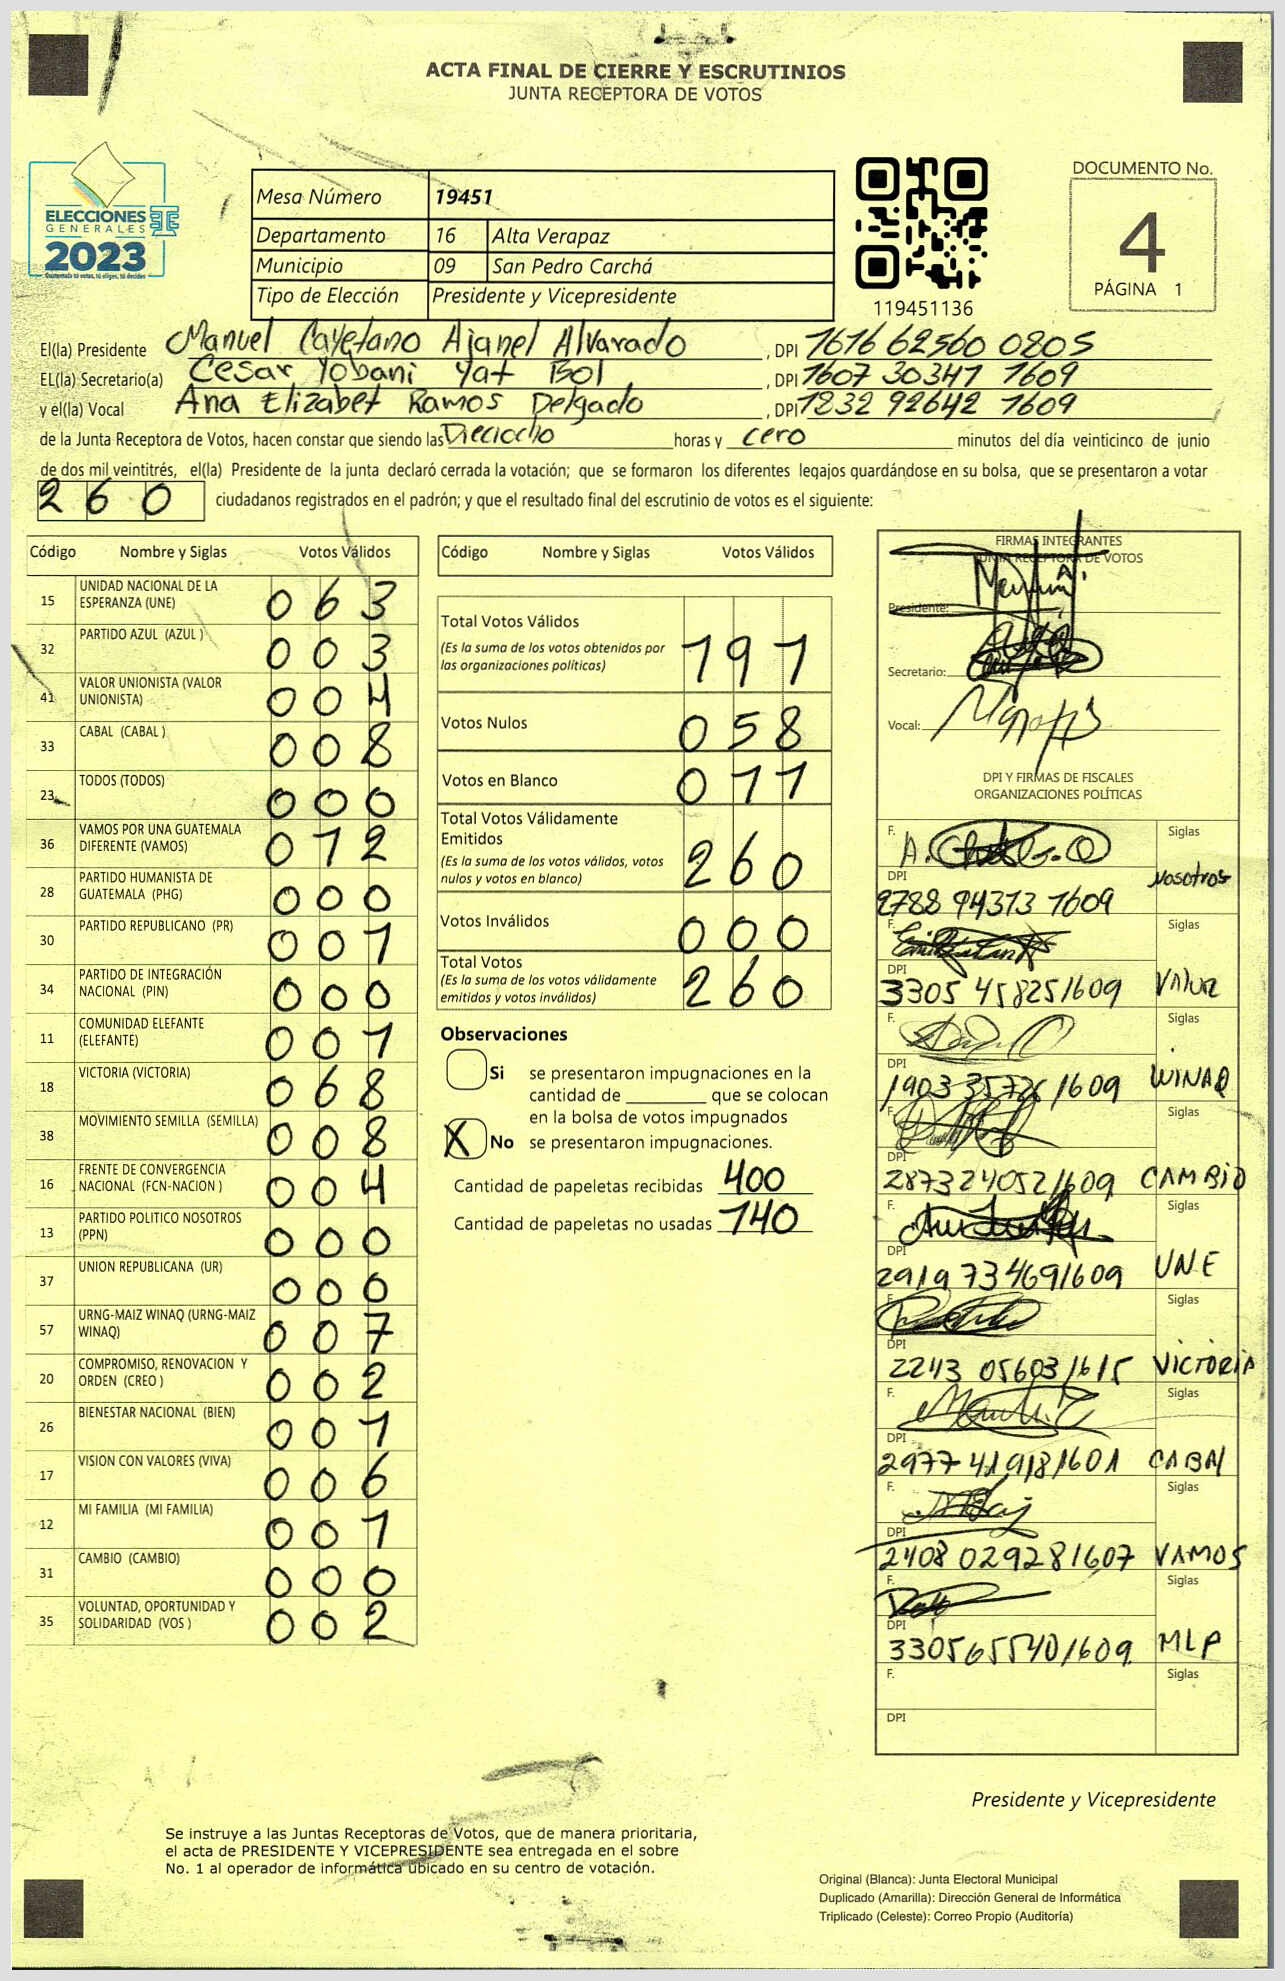 ACTA FINAL DE CIERRE Y ESCRUTINIOS
JUNTA RECEPTORA DE VOTOS
ELECCIONES
GENERALES
2023
Mesa Número 19451
Departamento 16 Alta Verapaz
Municipio 09 San Pedro Carchá
Tipo de Elección Presidente y Vicepresidente
119451136
DOCUMENTO No.
4
PÁGINA 1
El(la) Presidente Manuel Cayetano Ajanel Alvarado, DPI 1616 62560 0805
EL(la) Secretario(a) Cesar Yobani Yat Bol, DPI 1607 30341 1609
y el(la) Vocal Ana Elizabet Ramos Delgado, DPI 1232 92642 1609
de la Junta Receptora de Votos, hacen constar que siendo las Dieciocho horas y cero minutos del día veinticinco de junio
de dos mil veintitrés, el(la) Presidente de la junta declaró cerrada la votación; que se formaron los diferentes legajos guardándose en su bolsa, que se presentaron a votar
260 ciudadanos registrados en el padrón; y que el resultado final del escrutinio de votos es el siguiente:
Código Nombre y Siglas Votos Válidos
15 UNIDAD NACIONAL DE LA ESPERANZA (UNE) 063
32 PARTIDO AZUL (AZUL ) 003
41 VALOR UNIONISTA (VALOR UNIONISTA) 004
33 CABAL (CABAL ) 008
23 TODOS (TODOS) 000
36 VAMOS POR UNA GUATEMALA DIFERENTE (VAMOS) 012
28 PARTIDO HUMANISTA DE GUATEMALA (PHG) 000
30 PARTIDO REPUBLICANO (PR) 001
34 PARTIDO DE INTEGRACIÓN NACIONAL (PIN) 000
11 COMUNIDAD ELEFANTE (ELEFANTE) 001
18 VICTORIA (VICTORIA) 068
38 MOVIMIENTO SEMILLA (SEMILLA) 008
16 FRENTE DE CONVERGENCIA NACIONAL (FCN-NACION ) 004
13 PARTIDO POLITICO NOSOTROS (PPN) 000
37 UNION REPUBLICANA (UR) 000
57 URNG-MAIZ WINAQ (URNG-MAIZ WINAQ) 007
20 COMPROMISO, RENOVACION Y ORDEN (CREO ) 002
26 BIENESTAR NACIONAL (BIEN) 001
17 VISION CON VALORES (VIVA) 006
12 MI FAMILIA (MI FAMILIA) 001
31 CAMBIO (CAMBIO) 000
35 VOLUNTAD, OPORTUNIDAD Y SOLIDARIDAD (VOS ) 002
Código Nombre y Siglas Votos Válidos
Total Votos Válidos
(Es la suma de los votos obtenidos por las organizaciones políticas) 191
Votos Nulos 058
Votos en Blanco 011
Total Votos Válidamente Emitidos
(Es la suma de los votos válidos, votos nulos y votos en blanco) 260
Votos Inválidos 000
Total Votos
(Es la suma de los votos válidamente emitidos y votos inválidos) 260
Observaciones
Si se presentaron impugnaciones en la
cantidad de ________ que se colocan
en la bolsa de votos impugnados
X No se presentaron impugnaciones.
Cantidad de papeletas recibidas 400
Cantidad de papeletas no usadas 140
FIRMAS INTEGRANTES
JUNTA RECEPTORA DE VOTOS
Presidente:
Secretario:
Vocal:
DPI Y FIRMAS DE FISCALES
ORGANIZACIONES POLÍTICAS
F. Siglas
DPI Nosotros
2788 94313 1609
F. Siglas
DPI
3305 45825 1609 VALOR
F. Siglas
DPI
1903 1609 WINAQ
F. Siglas
DPI
287324052 1609 CAMBIO
F. Siglas
DPI
2919 73469 1609 UNE
F. Siglas
DPI
2243 05603 1615 VICTORIA
F. Siglas
DPI
2977 41918 1601 CABAL
F. Siglas
DPI
2408 02928 1607 VAMOS
F. Siglas
DPI
330565540 1609 MLP
F. Siglas
DPI
Presidente y Vicepresidente
Se instruye a las Juntas Receptoras de Votos, que de manera prioritaria,
el acta de PRESIDENTE Y VICEPRESIDENTE sea entregada en el sobre
No. 1 al operador de informática ubicado en su centro de votación.
Original (Blanca): Junta Electoral Municipal
Duplicado (Amarilla): Dirección General de Informática
Triplicado (Celeste): Correo Propio (Auditoría)